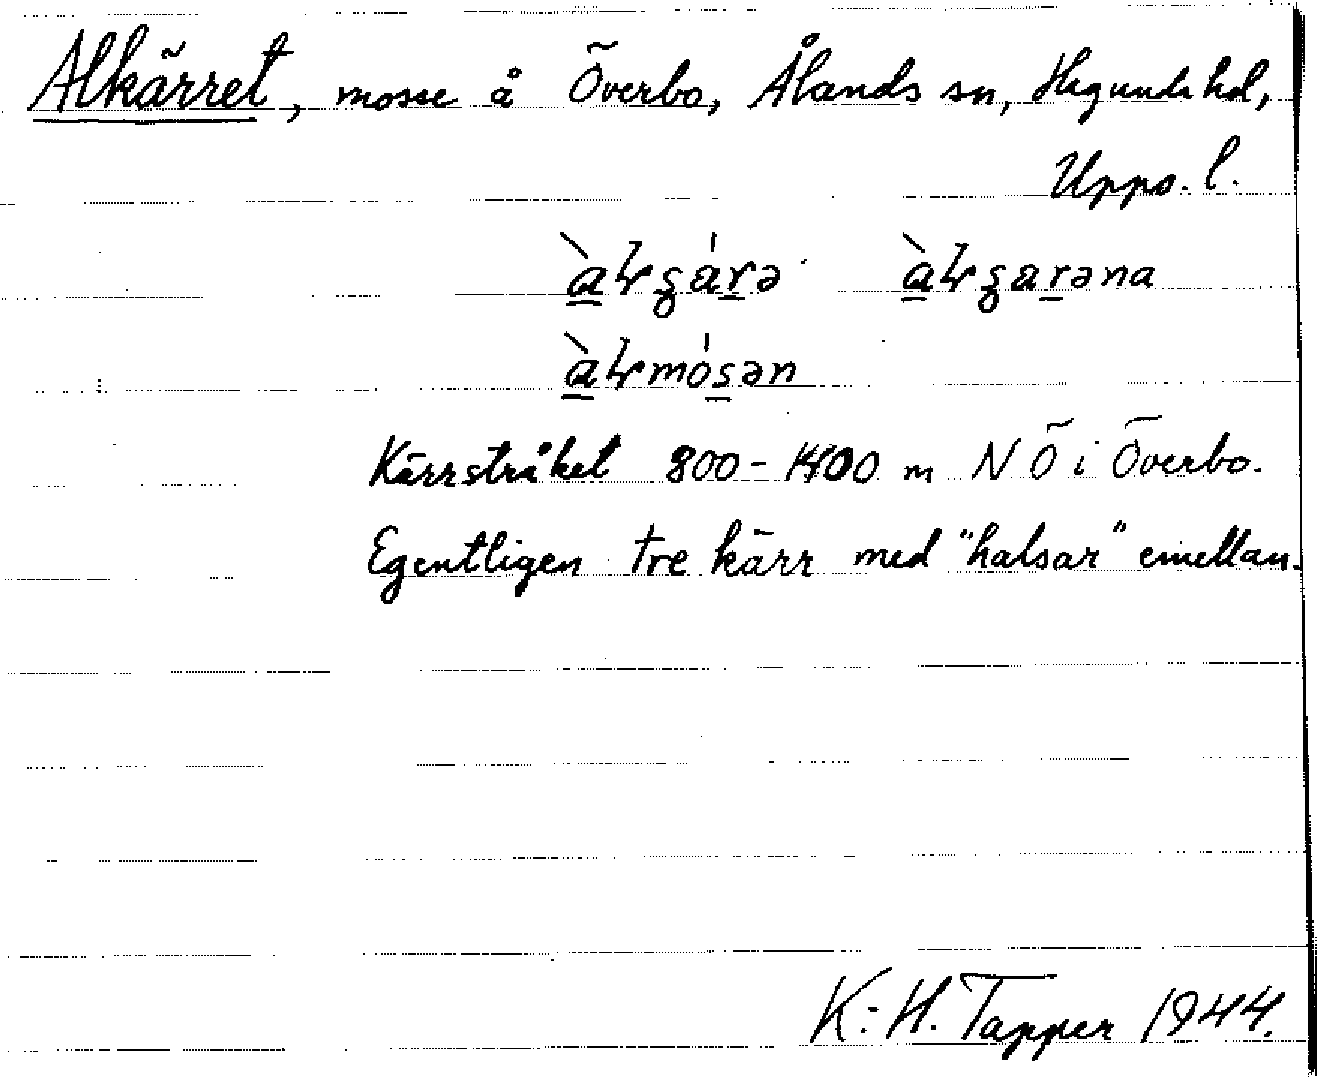 Alkärret, mosse å Överbo, Ålands sn, Hagunda hd,
Upps. l.
Kärrstråket 800–1400 m NÖ i Överbo.
Egentligen tre kärr med "halsar" emellan.
K.-H. Tapper 1944.